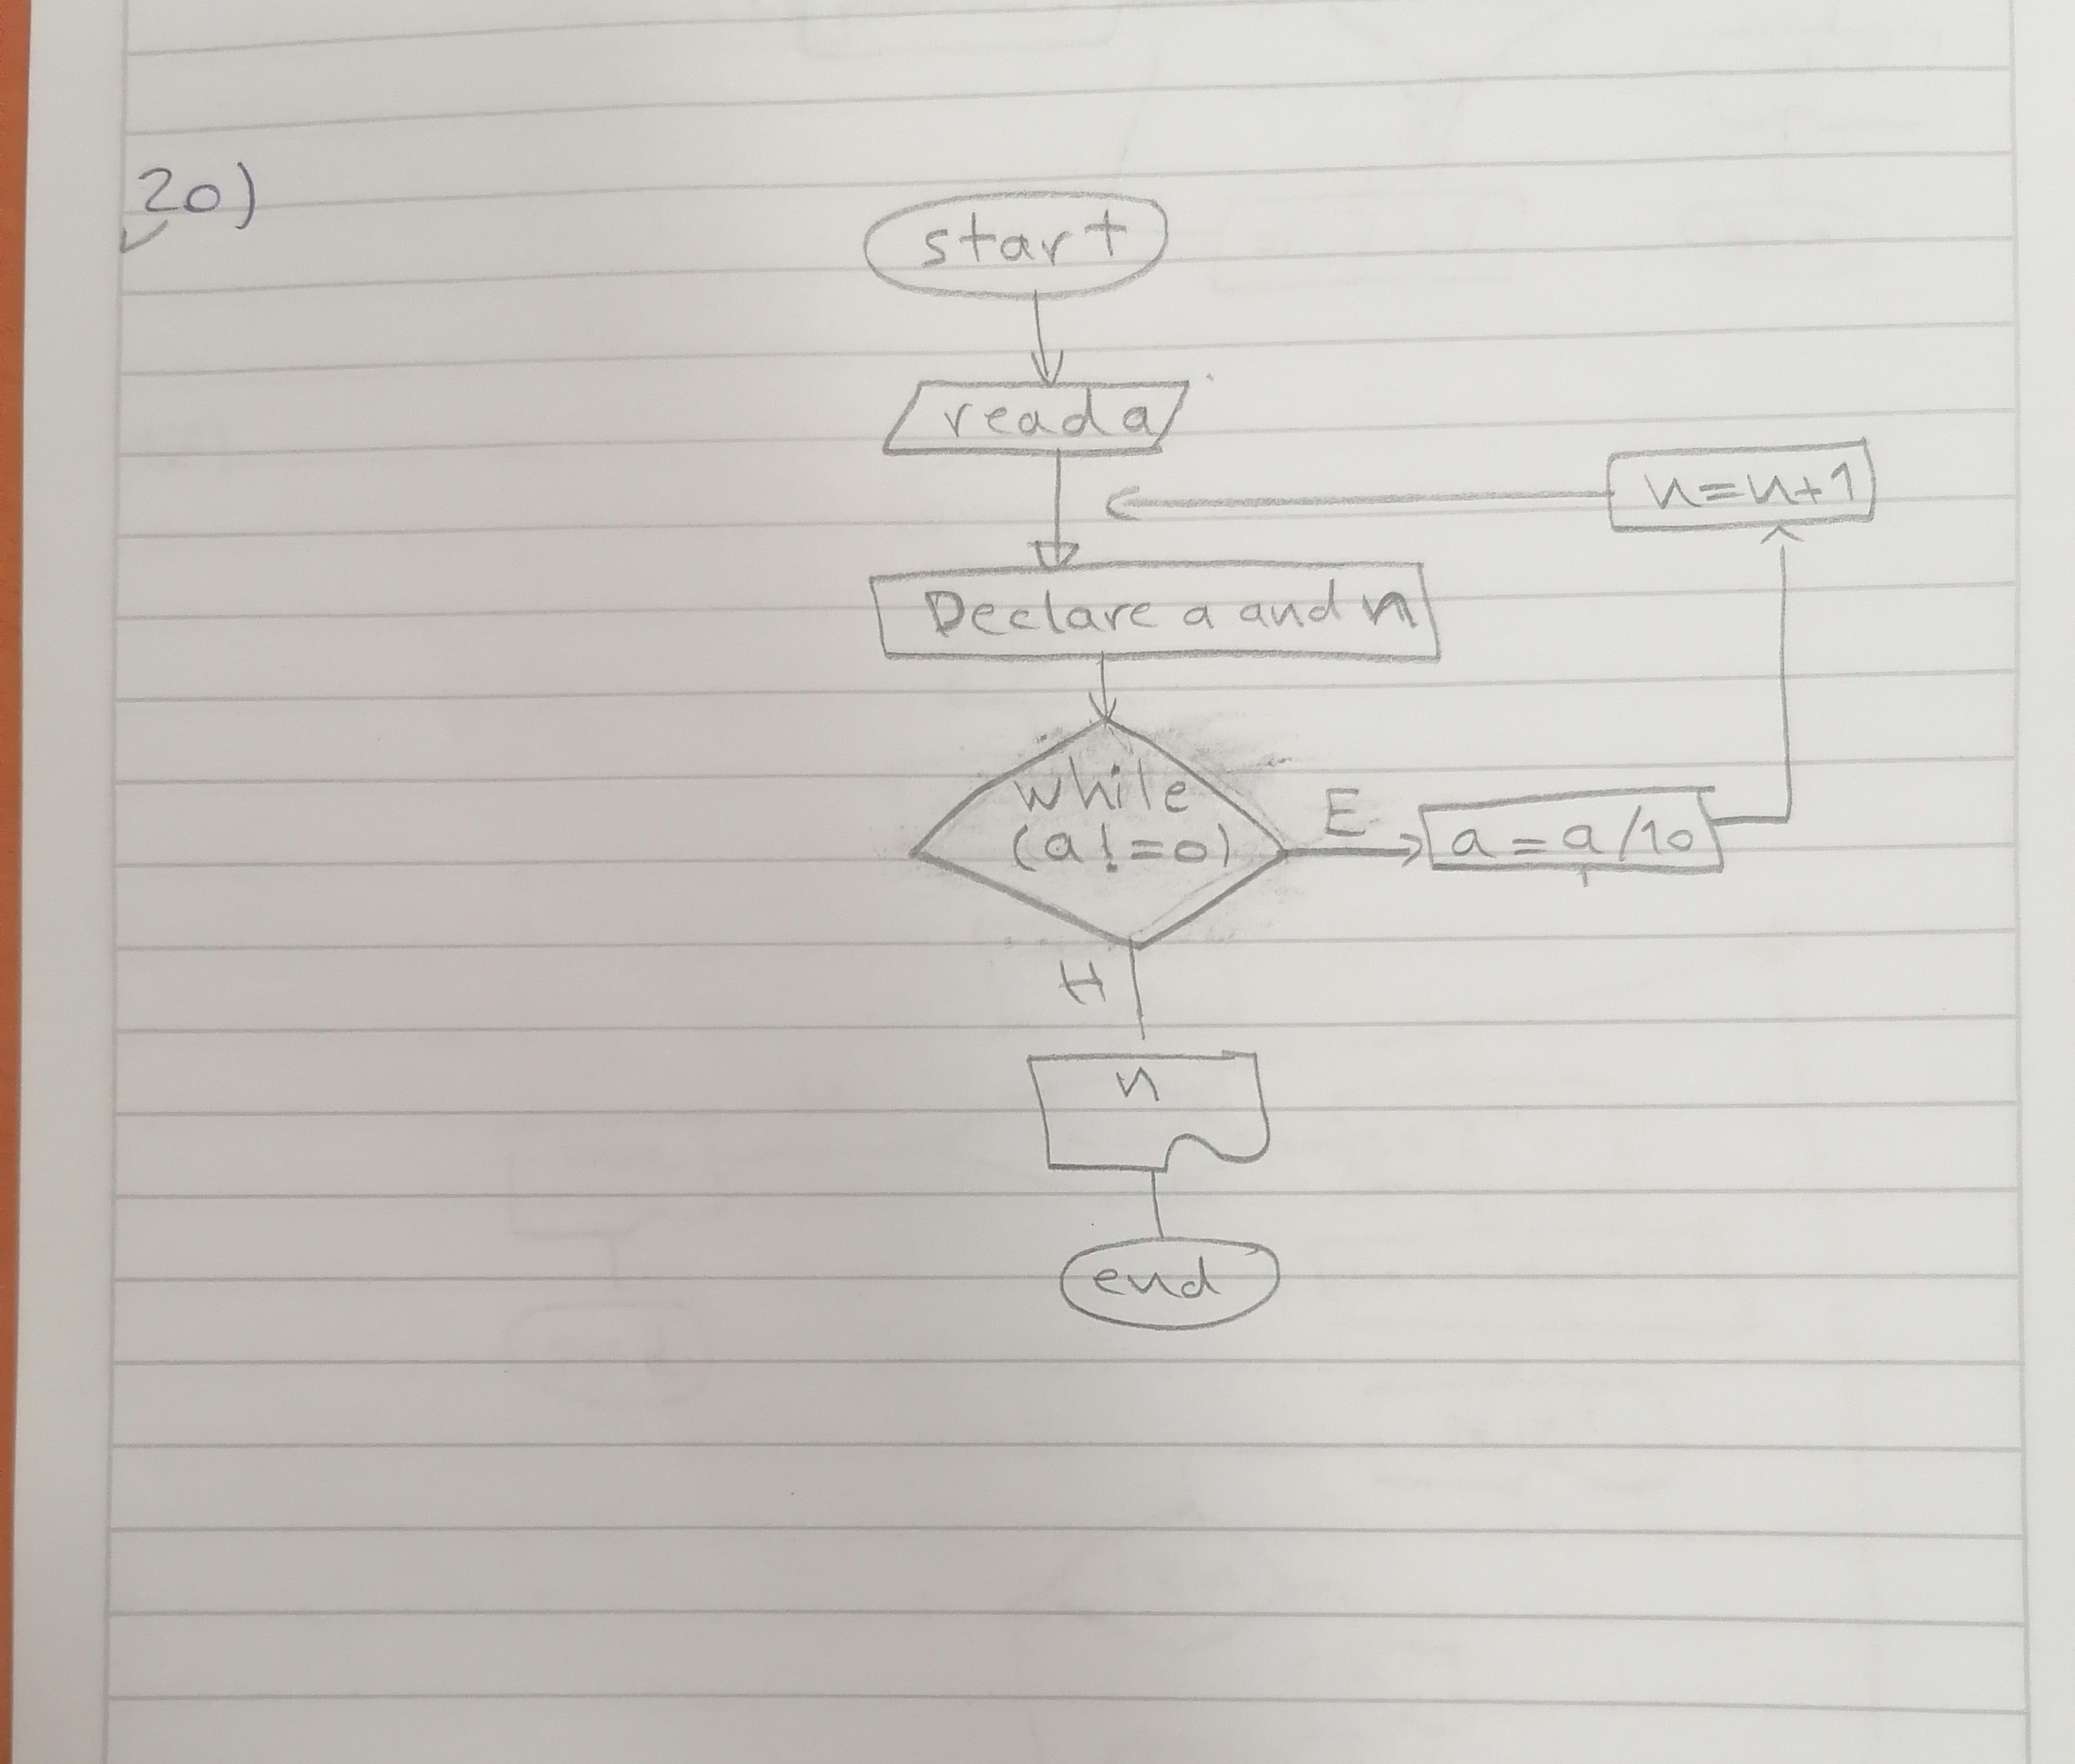 20)
start
read a
n=n+1
Declare a and n
while
(a!=0)
E
a=a/10
H
n
end